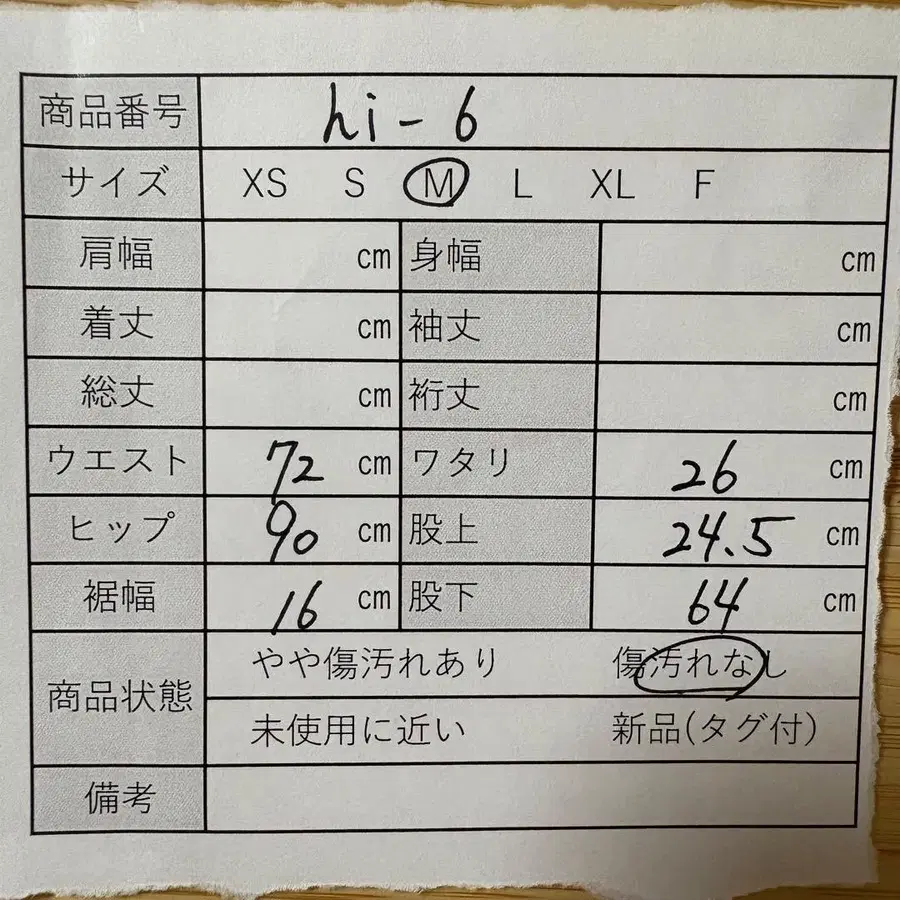 商品番号 hi-6
サイズ XS S M L XL F
肩幅 cm 身幅 cm
着丈 cm 袖丈 cm
総丈 cm 裄丈 cm
ウエスト 72 cm ワタリ 26 cm
ヒップ 90 cm 股上 24.5 cm
裾幅 16 cm 股下 64 cm
商品状態 やや傷汚れあり 傷汚れなし
未使用に近い 新品(タグ付)
備考